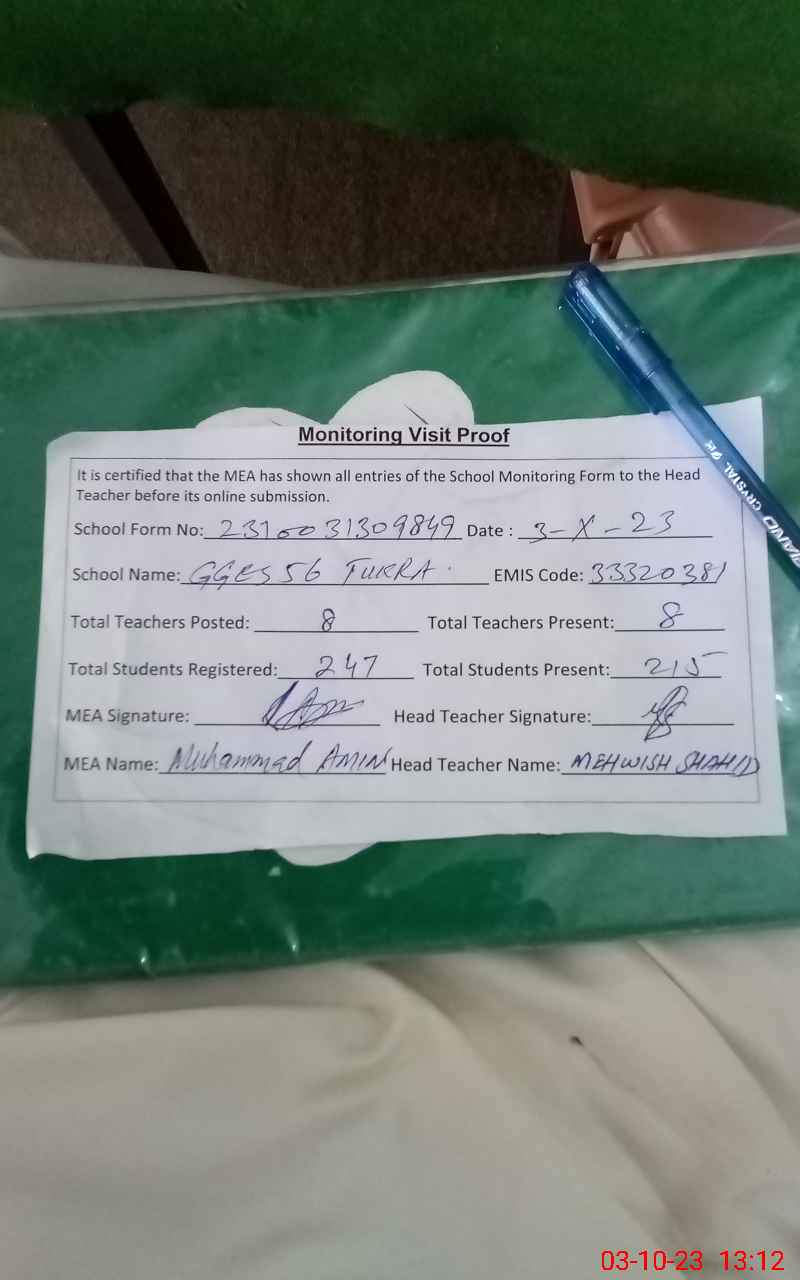 Monitoring Visit Proof
It is certified that the MEA has shown all entries of the School Monitoring Form to the Head
Teacher before its online submission.
School Form No: 2310031309849 Date : 3-X-23
School Name: GGES 56 TUKRA. EMIS Code: 33320381
Total Teachers Posted: 8 Total Teachers Present: 8
Total Students Registered: 247 Total Students Present: 215
MEA Signature: Head Teacher Signature:
MEA Name: Muhammad AMIN Head Teacher Name: MEHWISH SHAHID
PIANO CRYSTAL
03-10-23 13:12